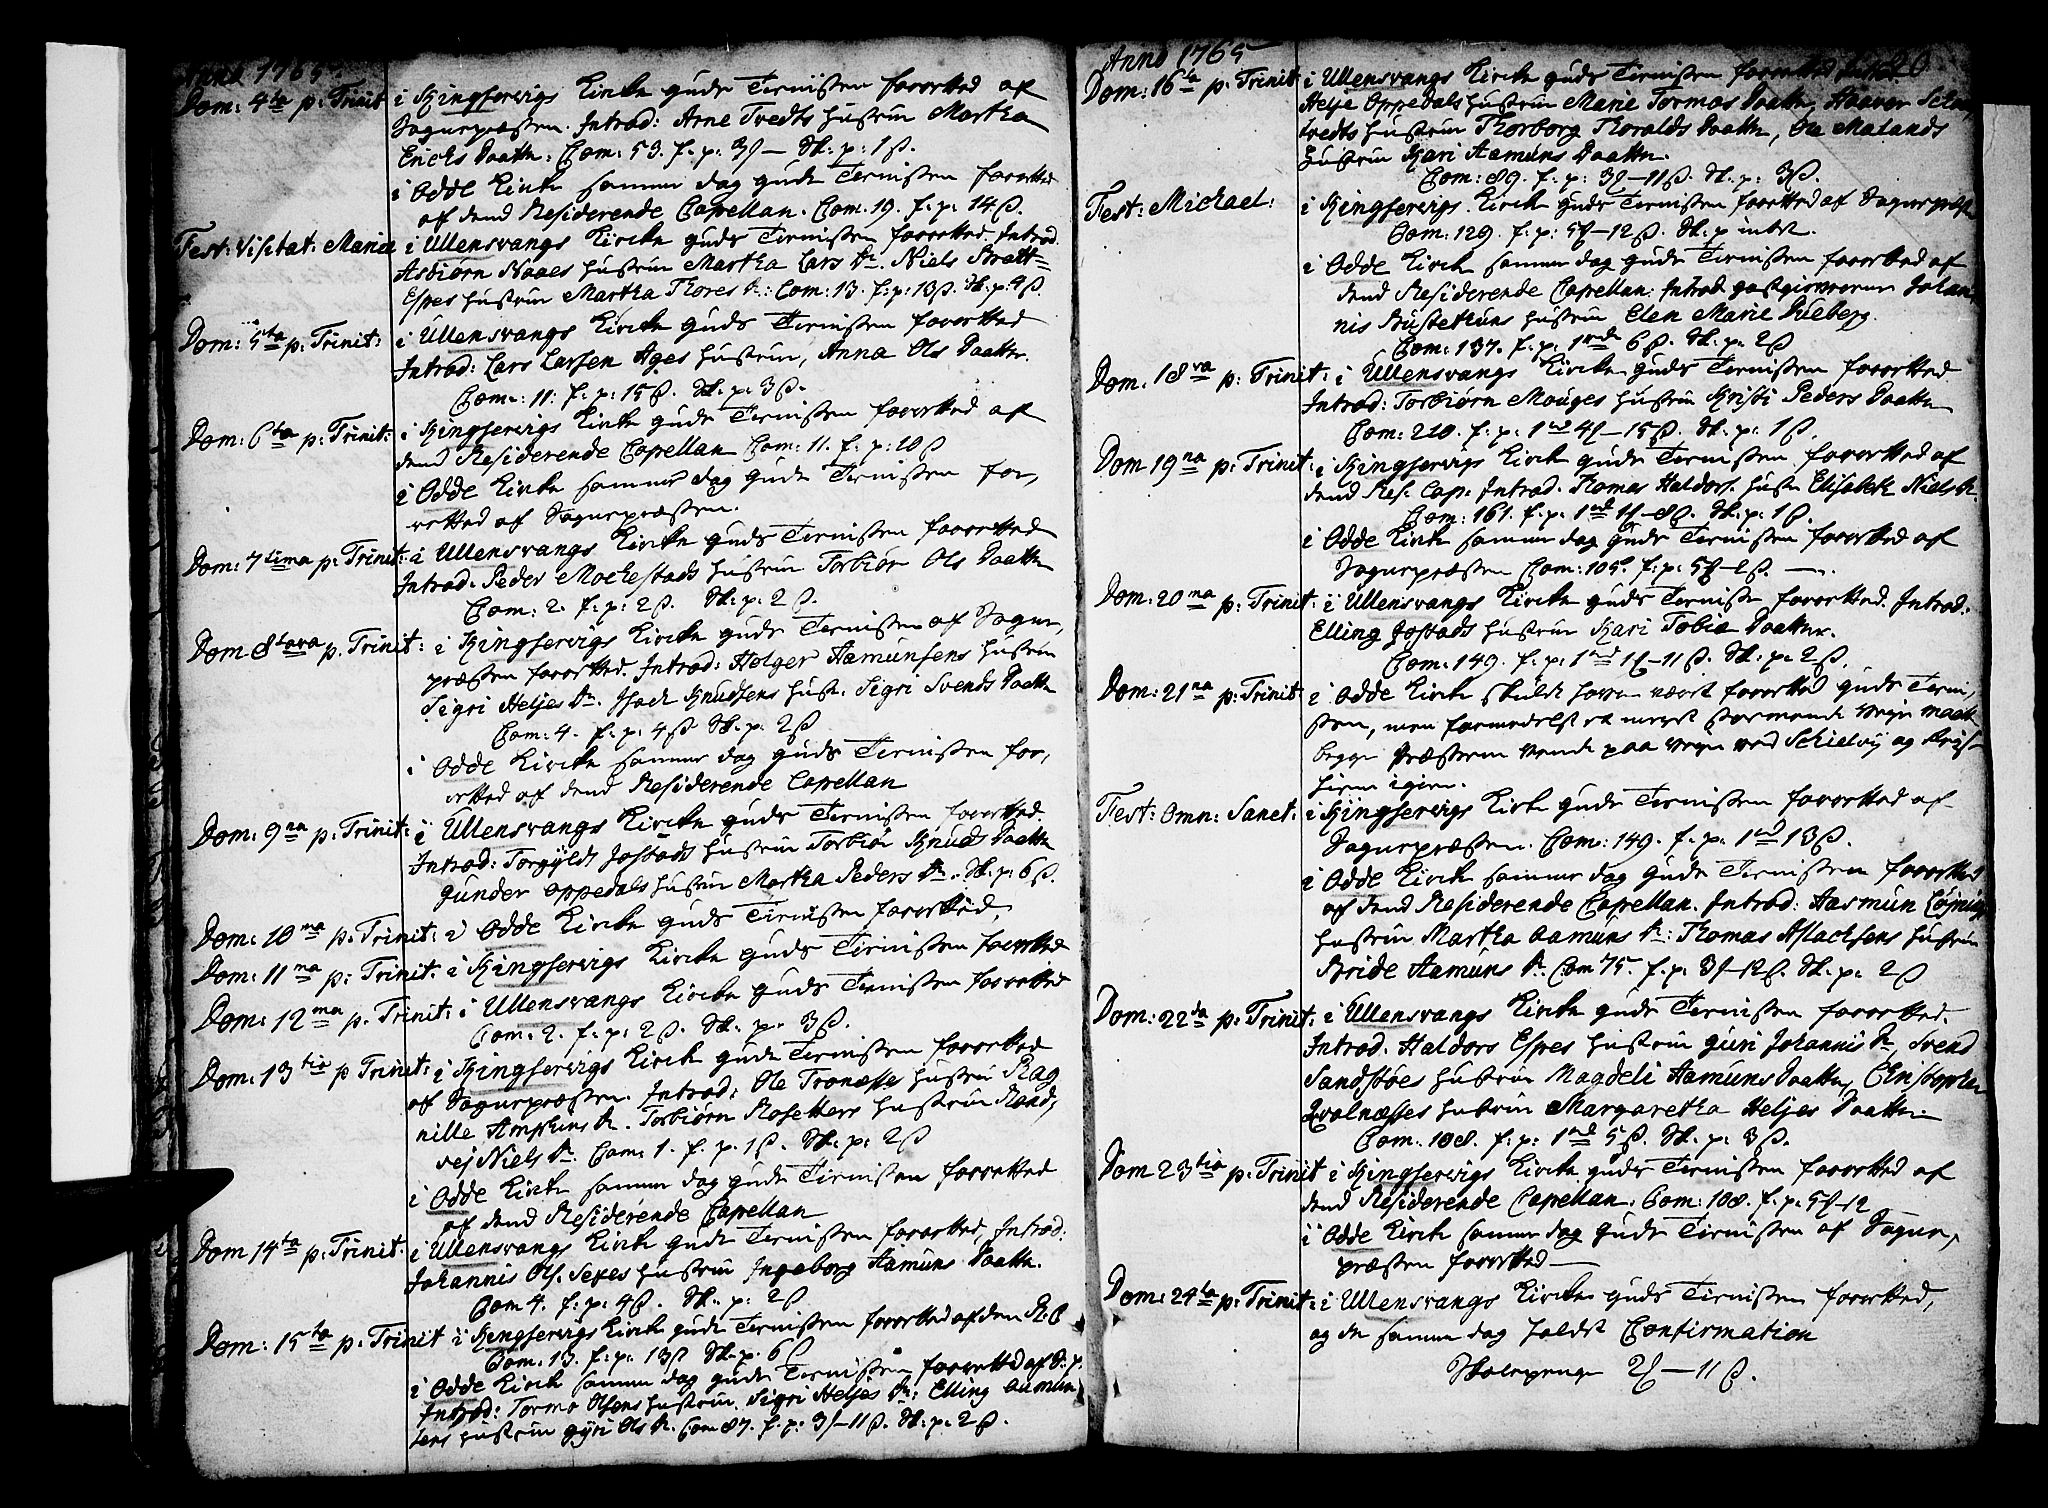 Anno 1765.
Dom: 4ta p: Trinit: i Kingservigs Kirke Guds Tienisten forretted af
Sognepræsten. Introd: Arne Tvedts Hustrue Martha
Erichs Daatter. Com: 53. f. p: 3ʃ — Sk: p: 1 ß.
i Odde Kirke samme dag Guds Tienisten forretted
af dend Residerende Capellan. Com. 19. f. p: 14 ß.
Fest: Visitat: Mariæ i Ullensvangs Kirke Guds Tienisten forretted. Introd.
Asbiørn Naaes Hustrue Martha Lars Dr. Niels Bratt=
Espes Hustrue Martha Thores Dr: Com: 13. f: p: 13 ß. Sk: p. 4 ß.
Dom: 5ta p: Trinit: i Ullensvangs Kirke Guds Tienisten forretted
Introd: Lars Larsen Ages Hustrue, Anna Ols Daatter.
Com: 11: f: p: 15 ß. Sk: p: 3 ß.
Dom: 6ta p: Trinit: i Kingservigs Kirke Guds Tienisten forretted af
dend Residerende Capellan Com: 11. f: p: 10 ß
i Odde Kirke samme dag Guds Tienisten for,
retted af Sognepræsten.
Dom: 7tima p: Trinit: i Ullensvangs Kirke Guds Tienisten forretted
Introd: Peder Mochestads Hustrue Torbiør Ols Daatter
Com: 2. f: p: 2 ß. Sk: p: 2 ß.
Dom 8tava p. Trinit: i Kingservigs Kirke Guds Tienisten af Sogne,
præsten forretted. Introd: Holger Aamunsens Hustrue
Sigri Heljes Dr. Isach Knudsens Hustr: Sigri Svends Daatter
Com: 4. f. p: 4 ß Sk: p: 2 ß
i Odde Kirke samme dag Guds Tienisten for,
rettet af dend Residerende Capellan
Dom: 9na p: Trinit: i Ullensvangs Kirke Guds Tienisten forretted.
Introd: Torgyls Jostads Hustrue Torbiør Knuds Daatter
Gunder Oppedals Hustrue Martha Peders Dr. Sk: p: 6 ß.
Dom: 10ma p: Trinit: i Odde Kirke Guds Tienisten forrettet,
Dom: 11ma p: Trinit: i Kingservigs Kirke Guds Tienisten forrettet
Dom: 12ma p. Trinit: i Ullensvangs Kirke Guds Tienisten forrettet
Com: 2. f: p: 2 ß. Sk: p: 3 ß.
Dom: 13tia p Trinit: i Kingservigs Kirke Guds Tienisten forrettet
af Sognepræsten. Introd: Ole Tronæsses Hustrue Rag
nille Amfuns Dr. Torbiørn Rosetters Hustrue Rand,
vej Niels Dr. Com: 1. f. p. 1 ß. Sk: p: 2 ß
i Odde Kirke samme dag Guds Tienisten forrettet
af dend Residerende Capellan
Dom 14ta p: Trinit. i Ullensvangs Kirke Guds Tienisten forrettet, Introd:
Johannis Ols. Sexes Hustrue Ingeborg Aamuns Daatter.
Com 4. f: p: 4 ß. Sk: p: 2 ß
Dom: 15ta p: Trinit i Kingservigs Kirke Guds Tienisten forrettet af den R: C
Com: 13. f: p: 13 ß Sk: p. 6 ß
i Odde Kirke samme dag Guds Tienisten forrettet af S. p.
Introd: Tormo Olsens Hustrue Sigri Heljes Dr: Elling Aamun
sens Hustrue Gyri Ols Dr. Com 87. f. p: 3ʃ—11 ß. Sk: p: 2 ß.
Anno 1765
Dom: 16ta p: Trinit: i Ullensvangs Kirke Guds Tienisten forrettet Introd.
Helje Oppedals Hustrue Marie Tormos Daatter, Haaver
tvedts Hustrue Thorborg Thoralds Daatter, Ole Mælands
Hustrue Kari Aamuns Daatter.
Com: 89. f. p: 3ʃ—11 ß. Sk. p: 3 ß.
Fest: Michael: i Kingservigs Kirke Guds Tienisten forrettet af Sognepræst
Com: 129. f: p: 5ʃ—12 ß. Sk: p intet.
i Odde Kirke samme dag Guds Tienisten forrettet af
dend Residerende Capellan: Introd. Gastgieveren Johan
nis Bustethuns Hustrue Elen Marie Pileberg.
Com: 137. f. p: 1 md 6 ß. Sk: p: 2 ß
Dom. 18va p: Trinit: i Ullensvangs Kirke Guds Tienisten forrettet
Introd: Torbiørn Mouges Hustrue Kristi Peders Daatter
Com: 210. f: p: 1 md 4ʃ—15 ß. Sk: p: 1 ß.
Dom 19na p: Trinit: i Kingservigs Kirke Guds Tienisten forrettet af
dend Res. Cap. Introd. Thomas Haldors. Hustr Elisabeth Niels Dr.
Com: 161. f: p: 1 md 1ʃ—8 ß. Sk: p: 1 ß.
i Odde Kirke samme dag Guds Tienisten forrettet af
Sognepræsten Com: 105. f: p: 5ʃ—2 ß. —
Dom: 20ma p: Trinit: i Ullensvangs Kirke Guds Tieniste forrettet. Introd:
Elling Jostads Hustrue Kari Tobia Daatter.
Com: 149. f: p: 1 md 1ʃ—11 ß. Sk: p: 2 ß.
Dom: 21na p: Trinit i Odde Kirke skulde haver været forrettet Guds Tieni,
sten, men formedelst et meget stormende Vejr maatte
begge Præsterne vende paa Vejen ved Schielvij og Rejse
hiem igien.
Fest: Omn: Sanct: i Kingservigs Kirke Guds Tienisten forrettet af
Sognepræsten. Com: 149. f. p: 1 md 13 ß.
i Odde Kirke samme dag Guds Tienisten forrettet
af dend Residerende Capellan. Introd: Aasmun
Hustrue Martha Aamuns Dr: Thomas Aslachsens Hustrue
Bride Aamuns Dr. Com 75. f. p: 3ʃ—12 ß. Sk. p: 2 ß
Dom: 22da p: Trinit: i Ullensvangs Kirke Guds Tienisten forrettet.
Introd. Haldors Espes Hustrue Guri Johannis Dr, Svend
Sandstøes Hustrue Magdeli Aamuns Daatter, Christopher
Qvalnæsses Hustrue Margaretha Heljes Daatter.
Com: 108. f: p: 1 md 5 ß. Sk: p: 3 ß.
Dom 23tia p: Trinit i Kingservigs Kirke Guds Tienisten forrettet af
dend Residerende Capellan. Com: 108. f: p: 5ʃ—12
i Odde Kirke samme dag Guds Tienisten af Sogne,
præsten forrettet —
Dom: 24ta p: Trinit: i Ullensvangs Kirke Guds Tienisten forrettet,
og den samme dag holdet Confirmation
Skolepenge 2ʃ—11 ß.